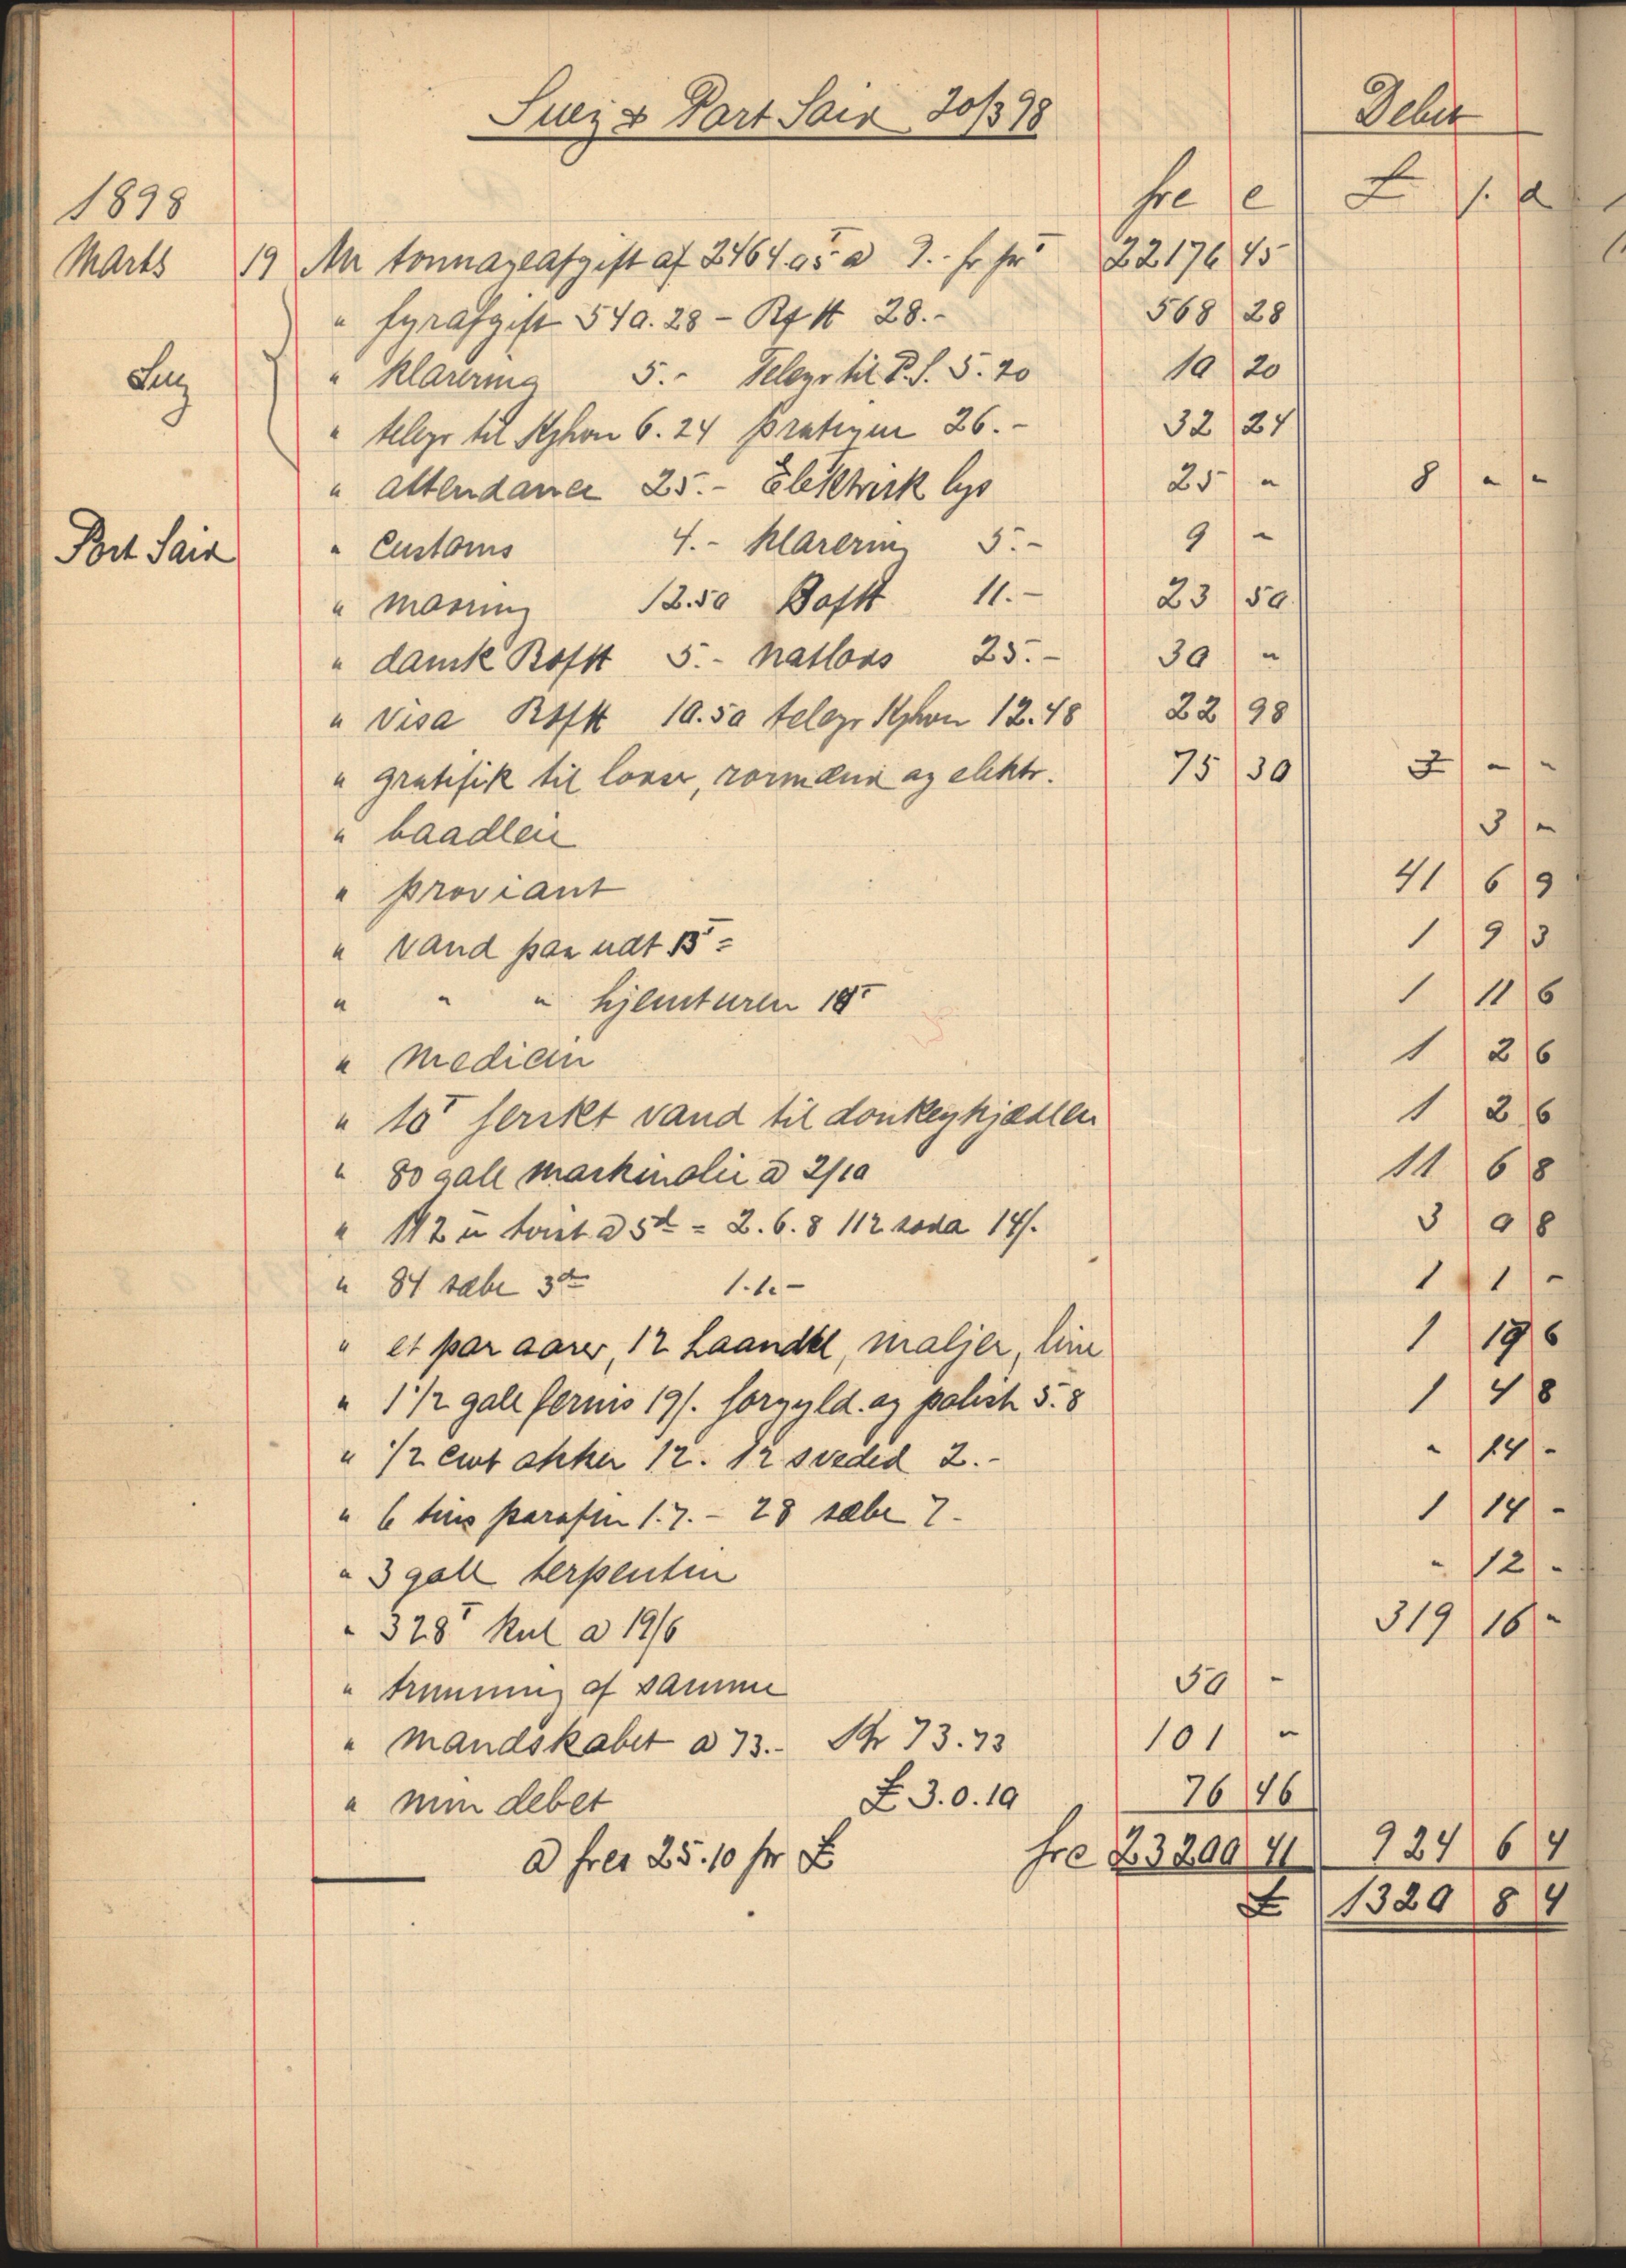 Suez & Port Said 20/3 98 Debet
frc c £ s. d
1898
Marts 19 An tonnageafgift af 2464.05 a 9.- fr pr T 22176 45
" fyrafgift 540.28 - Bftt 28.- 568 28
Suez " klarering 5.- Telegr til P.S. 5.20 10 20
" telegr til Kjhvn 6.24 pratique 26.- 32 24
" attendance 25.- Elektrisk lys 25 " 8 " "
Port Said " Customs 4.- klarering 5.- 9 -
" mooring 12.50 Boftt 11.- 23 50
" dansk Boftt 5.- natlods 25.- 30 "
" visa Boftt 10.50 telegr Kjhvn 12.48 22 98
" gratifik til lodser, rormænd og elektr. 75 30 7 - -
" baadleie 3 -
" proviant 41 6 9
" vand paa udt 15T 1 9 3
" " " hjemturen 18T 1 11 6
" Medicin 1 2 6
" 10T ferskt vand til donkeykjædlen 1 2 6
" 80 gall maskinolie a 2/10 11 6 8
" 112 tt tvist a 5d = 2.6.8 112 soda 14/. 3 0 8
" 84 sæbe 3d 1.1.- 1 1 -
" et par aarer, 12 haandkl, maljer, line 1 19 6
" 1 1/2 gall fernis 19/. forgyld. og polish 5.8 1 4 8
" 1/2 cwt okker 12. 12 2.- - 14 -
" 6 tins parafin 1.7.- 28 sæbe 7.- 1 14 -
" 3 gall terpentin - 12 -
" 328T kul a 19/6 319 16 -
" trimning af samme 50 -
" Mandskabet a 73.- Kr 73.73 101 "
" min debet £ 3.0.10 76 46
a frcs 25.10 pr £ frc 23200 41 924 6 4
£ 1320 8 4